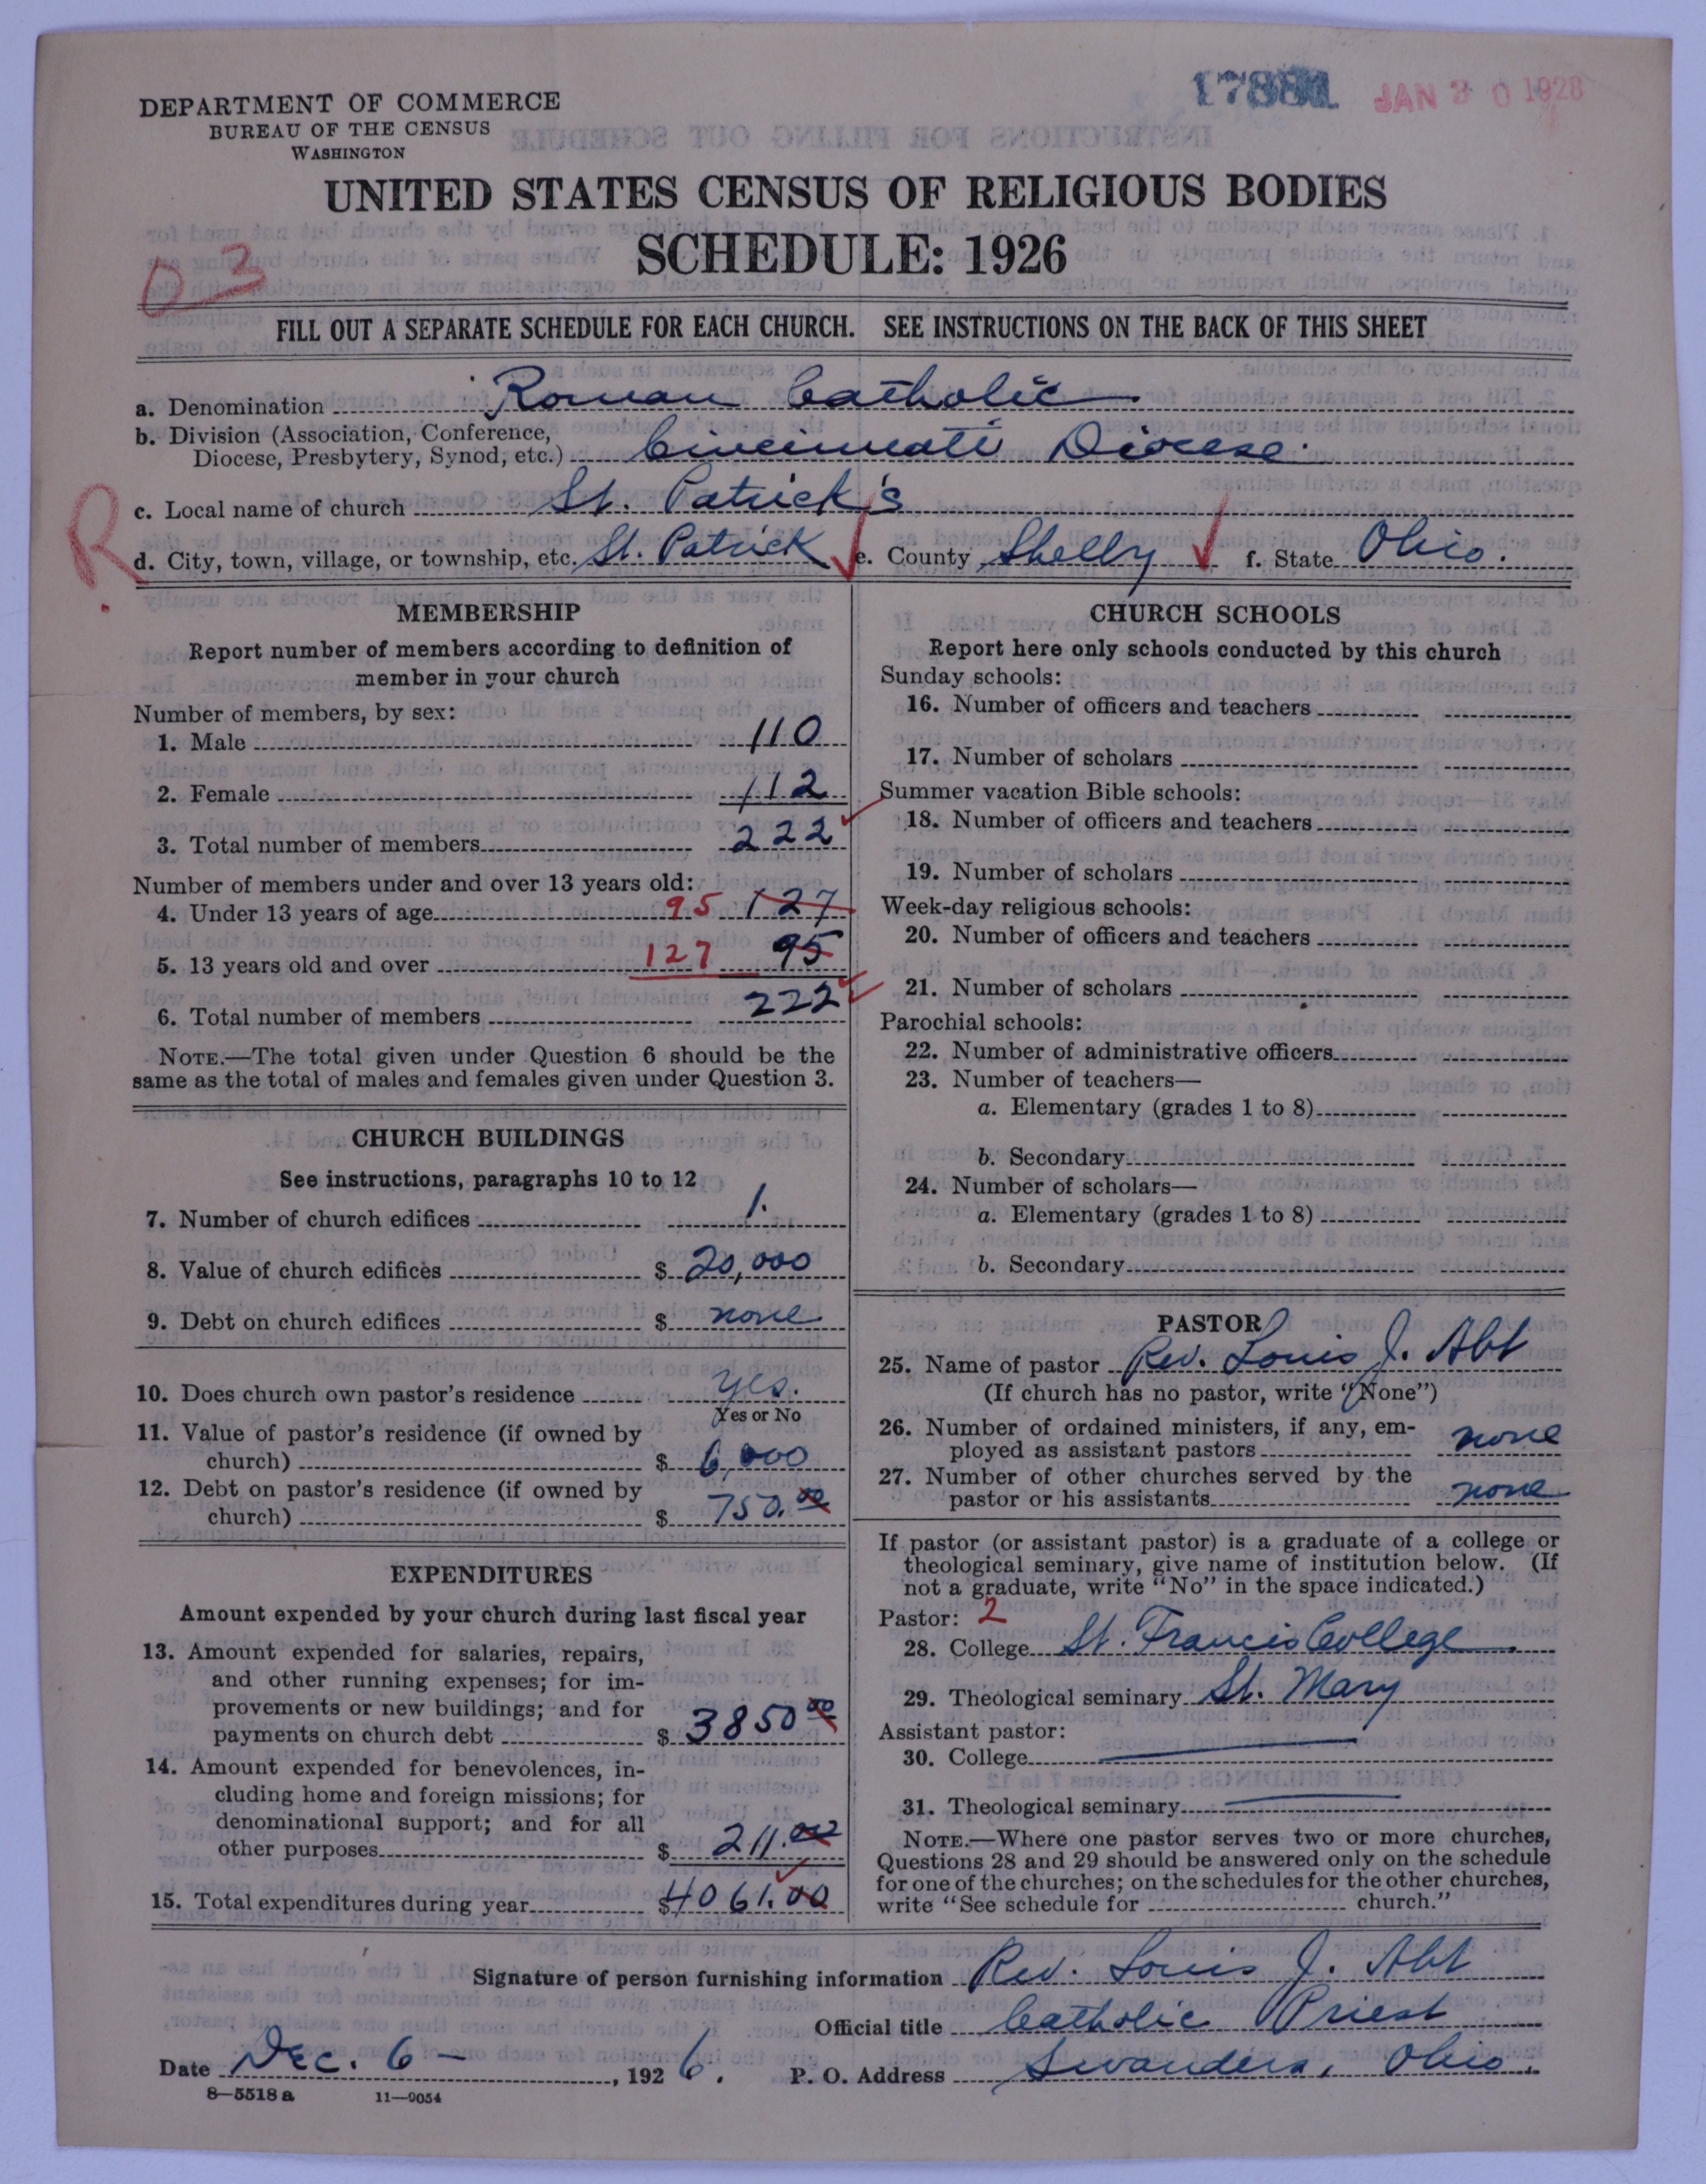 JAN 30 1928
DEPARTMENT OF COMMERCE
BUREAU OF THE CENSUS
WASHINGTON
UNITED STATES CENSUS OF RELIGIOUS BODIES
SCHEDULE: 1926
03
FILL OUT A SEPARATE SCHEDULE FOR EACH CHURCH. SEE INSTRUCTIONS ON THE BACK OF THIS SHEET
a. Denomination Roman Catholic
b. Division (Association, Conference,
Diocese, Presbytery, Synod, etc.) Cincinnati Diocese.
c. Local name of church St. Patrick's
R.
d. City, town, village, or township, etc. St. Patrick e. County Shelby f. State Ohio.
MEMBERSHIP
Report number of members according to definition of
member in your church
Number of members, by sex:
1. Male 110
2. Female 112
3. Total number of members 222
Number of members under and over 13 years old:
4. Under 13 years of age 95 127
5. 13 years old and over 127 95
6. Total number of members 222
NOTE.—The total given under Question 6 should be the
same as the total of males and females given under Question 3.
CHURCH BUILDINGS
See instructions, paragraphs 10 to 12
7. Number of church edifices 1.
8. Value of church edifices $ 20,000
9. Debt on church edifices $ none
10. Does church own pastor's residence yes.
Yes or No
11. Value of pastor's residence (if owned by
church) $ 6,000
12. Debt on pastor's residence (if owned by
church) $ 750.00
EXPENDITURES
Amount expended by your church during last fiscal year
13. Amount expended for salaries, repairs,
and other running expenses; for im-
provements or new buildings; and for
payments on church debt $ 3850 00
14. Amount expended for benevolences, in-
cluding home and foreign missions; for
denominational support; and for all
other purposes $ 211.00
15. Total expenditures during year $ 4061.00
CHURCH SCHOOLS
Report here only schools conducted by this church
Sunday schools:
16. Number of officers and teachers
17. Number of scholars
Summer vacation Bible schools:
18. Number of officers and teachers
19. Number of scholars
Week-day religious schools:
20. Number of officers and teachers
21. Number of scholars
Parochial schools:
22. Number of administrative officers
23. Number of teachers—
a. Elementary (grades 1 to 8)
b. Secondary
24. Number of scholars—
a. Elementary (grades 1 to 8)
b. Secondary
PASTOR
25. Name of pastor Rev. Louis J. Abt
(If church has no pastor, write "None")
26. Number of ordained ministers, if any, em-
ployed as assistant pastors none
27. Number of other churches served by the
pastor or his assistants none
If pastor (or assistant pastor) is a graduate of a college or
theological seminary, give name of institution below. (If
not a graduate, write "No" in the space indicated.)
Pastor: 2
28. College St. Francis College
29. Theological seminary St. Mary
Assistant pastor:
30. College
31. Theological seminary
NOTE.—Where one pastor serves two or more churches,
Questions 28 and 29 should be answered only on the schedule
for one of the churches; on the schedules for the other churches,
write "See schedule for church."
Signature of person furnishing information Rev. Louis J. Abt
Official title Catholic Priest
Date Dec. 6 – , 1926. P. O. Address Swanders, Ohio.
8—5518 a 11—9054